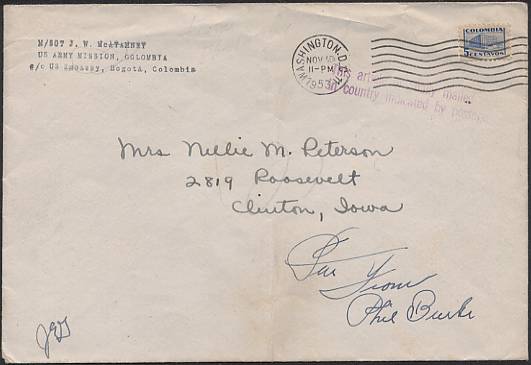 M/SGT J. W. McATAMNEY
US ARMY MISSION, COLOMBIA
c/o US Embassy, Bogotá, Colombia
WASHINGTON, D.C.
NOV 10
11-PM
1953
COLOMBIA
5 CENTAVOS
This article mailed
in country indicated by postage.
Mrs Nellie M. Peterson
2819 Roosevelt
Clinton, Iowa
From
Phil Burke